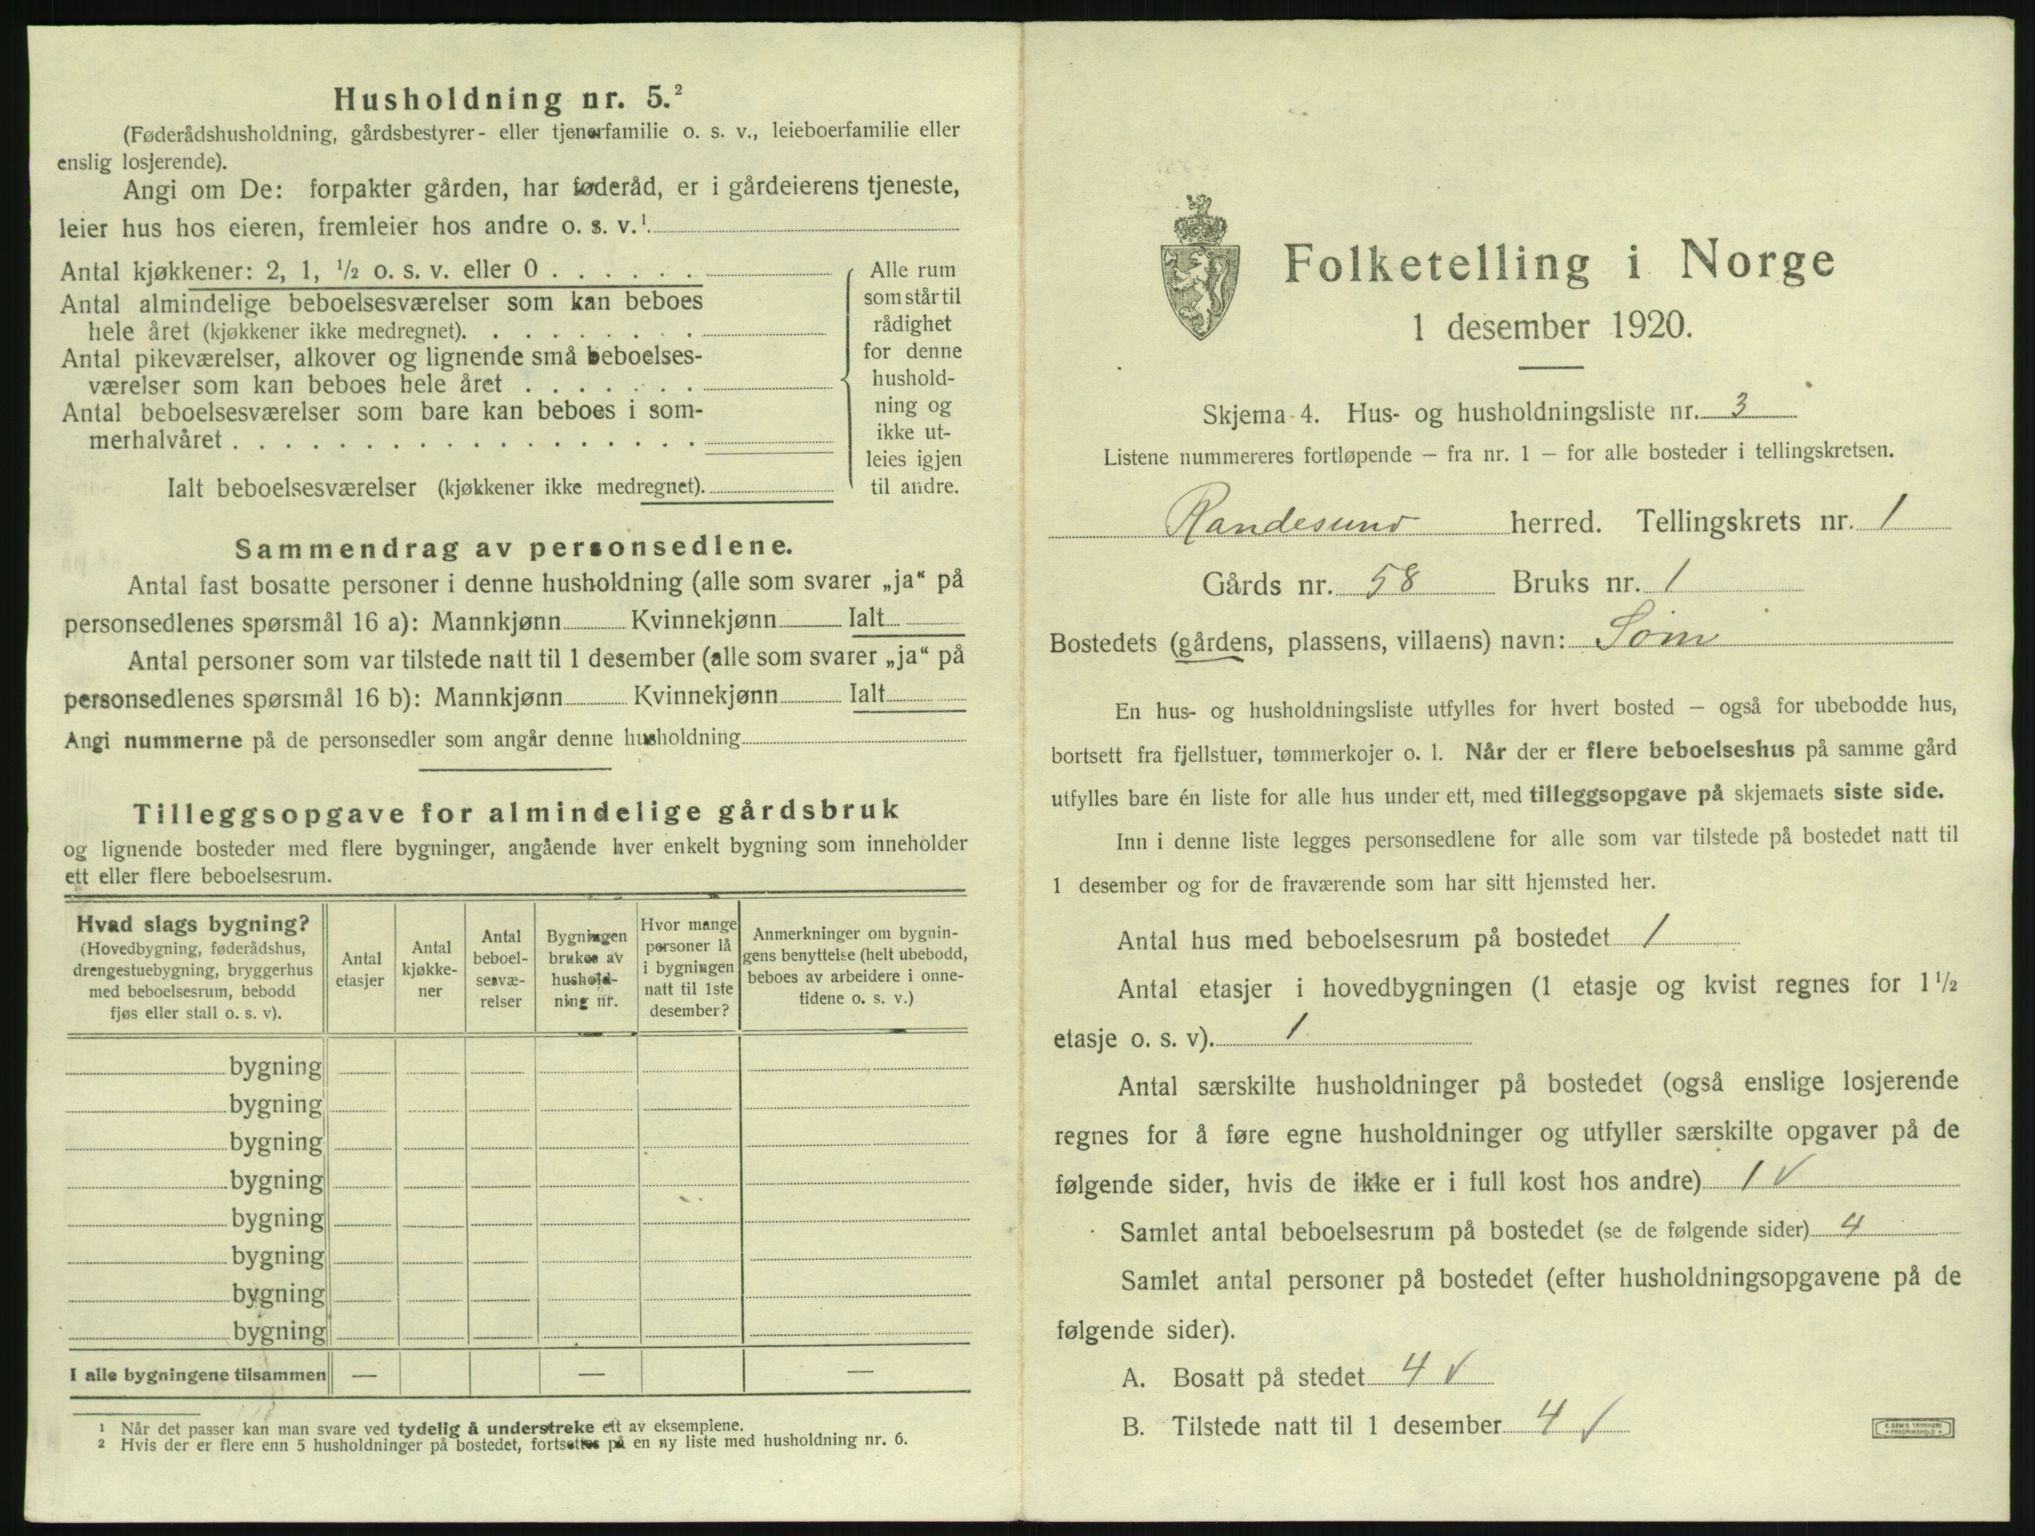 Husholdning nr. 5.²
(Føderådshusholdning, gårdsbestyrer- eller tjenerfamilie o. s. v., leieboerfamilie eller
enslig losjerende).
Angi om De: forpakter gården, har føderåd, er i gårdeierens tjeneste,
leier hus hos eieren, fremleier hos andre o. s. v.¹
Antal kjøkkener: 2, 1, ½ o. s. v. eller 0 . . . . . .
Antal almindelige beboelsesværelser som kan beboes
hele året (kjøkkener ikke medregnet). . . . . . . .
Antal pikeværelser, alkover og lignende små beboelses-
værelser som kan beboes hele året . . . . . . .
Antal beboelsesværelser som bare kan beboes i som-
merhalvåret . . . . . . . . . . . . . . . . . .
Ialt beboelsesværelser (kjøkkener ikke medregnet).
Alle rum
som står til
rådighet
for denne
hushold-
ning og
ikke ut-
leies igjen
til andre.
Sammendrag av personsedlene.
Antal fast bosatte personer i denne husholdning (alle som svarer „ja“ på
personsedlenes spørsmål 16 a): Mannkjønn Kvinnekjønn Ialt
Antal personer som var tilstede natt til 1 desember (alle som svarer „ja“ på
personsedlenes spørsmål 16 b): Mannkjønn Kvinnekjønn Ialt
Angi nummerne på de personsedler som angår denne husholdning
Tilleggsopgave for almindelige gårdsbruk
og lignende bosteder med flere bygninger, angående hver enkelt bygning som inneholder
ett eller flere beboelsesrum.
Hvad slags bygning?
(Hovedbygning, føderådshus,
drengestuebygning, bryggerhus
med beboelsesrum, bebodd
fjøs eller stall o. s. v).
Antal
etasjer
Antal
kjøkke-
ner
Antal
beboel-
sesvæ-
relser
Bygningen
brukes av
hushold-
ning nr.
Hvor mange
personer lå
i bygningen
natt til 1ste
desember?
Anmerkninger om bygnin-
gens benyttelse (helt ubebodd,
beboes av arbeidere i onne-
tidene o. s. v.)
bygning
bygning
bygning
bygning
bygning
bygning
bygning
bygning
I alle bygningene tilsammen — — —
¹ Når det passer kan man svare ved tydelig å understreke ett av eksemplene.
² Hvis der er flere enn 5 husholdninger på bostedet, fortsettes på en ny liste med husholdning nr. 6.
Folketelling i Norge
1 desember 1920.
Skjema 4. Hus- og husholdningsliste nr. 3
Listene nummereres fortløpende — fra nr. 1 — for alle bosteder i tellingskretsen.
Randesund herred. Tellingskrets nr. 1
Gårds nr. 58 Bruks nr. 1
Bostedets (gårdens, plassens, villaens) navn: Søm
En hus- og husholdningsliste utfylles for hvert bosted — også for ubebodde hus,
bortsett fra fjellstuer, tømmerkojer o. l. Når der er flere beboelseshus på samme gård
utfylles bare én liste for alle hus under ett, med tilleggsopgave på skjemaets siste side.
Inn i denne liste legges personsedlene for alle som var tilstede på bostedet natt til
1 desember og for de fraværende som har sitt hjemsted her.
Antal hus med beboelsesrum på bostedet 1
Antal etasjer i hovedbygningen (1 etasje og kvist regnes for 1½
etasje o. s. v). 1
Antal særskilte husholdninger på bostedet (også enslige losjerende
regnes for å føre egne husholdninger og utfyller særskilte opgaver på de
følgende sider, hvis de ikke er i full kost hos andre) 1 ✓
Samlet antal beboelsesrum på bostedet (se de følgende sider) 4
Samlet antal personer på bostedet (efter husholdningsopgavene på de
følgende sider).
A. Bosatt på stedet 4 ✓
B. Tilstede natt til 1 desember 4 ✓
E. SEM'S TRYKKERI
FREDRIKSHALD